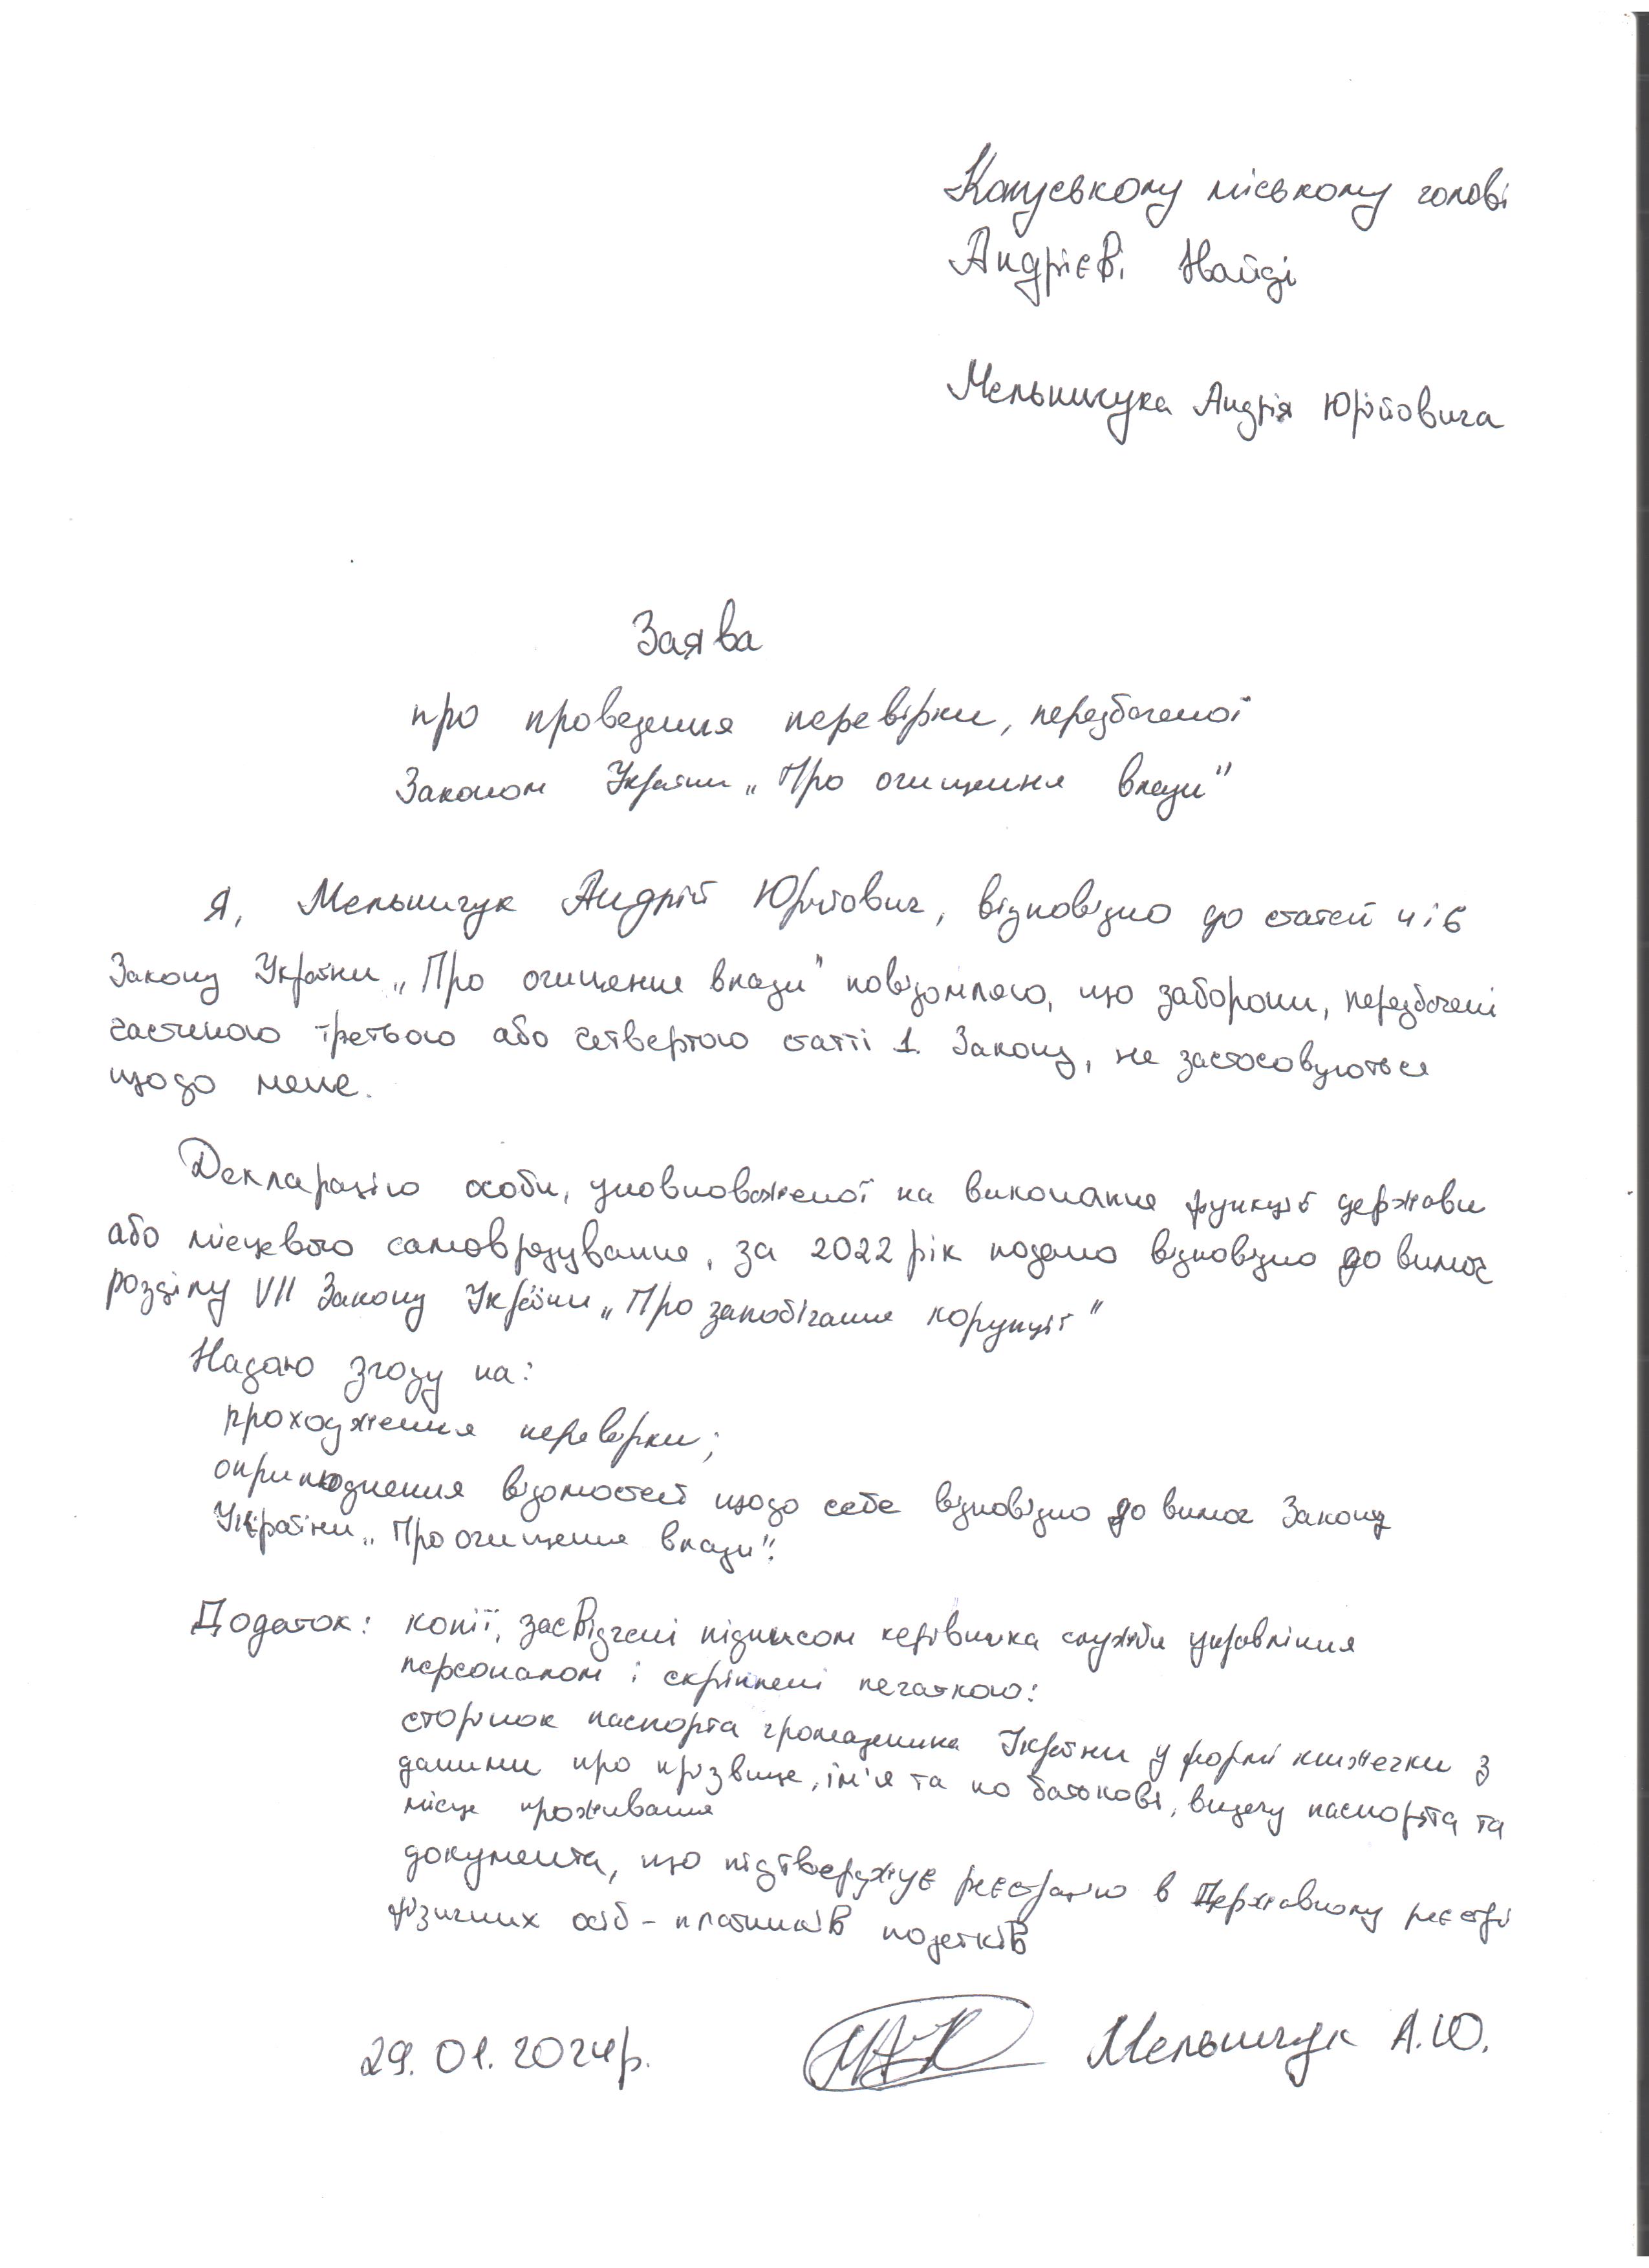 Калуському міському голові
Андрієві Найді
Мельничука Андрія Юрійовича
Заява
про проведення перевірки, передбаченої
Законом України „Про очищення влади"
Я, Мельничук Андрій Юрійович, відповідно до статей 4 і 6
Закону України „Про очищення влади" повідомляю, що заборони, передбачені
частиною третьою або четвертою статті 1 Закону, не застосовуються
щодо мене.
Декларацію особи, уповноваженої на виконання функцій держави
або місцевого самоврядування, за 2022 рік подано відповідно до вимог
розділу VII Закону України „Про запобігання корупції"
Надаю згоду на:
проходження перевірки;
оприлюднення відомостей щодо себе відповідно до вимог Закону
України „Про очищення влади".
Додаток: копії, засвідчені підписом керівника служби управління
персоналом і скріплені печаткою:
сторінок паспорта громадянина України у формі книжечки з
даними про прізвище, ім'я та по батькові, видачу паспорта та
місце проживання
документа, що підтверджує реєстрацію в Державному реєстрі
фізичних осіб - платників податків
29.01.2024р. Мельничук А.Ю.